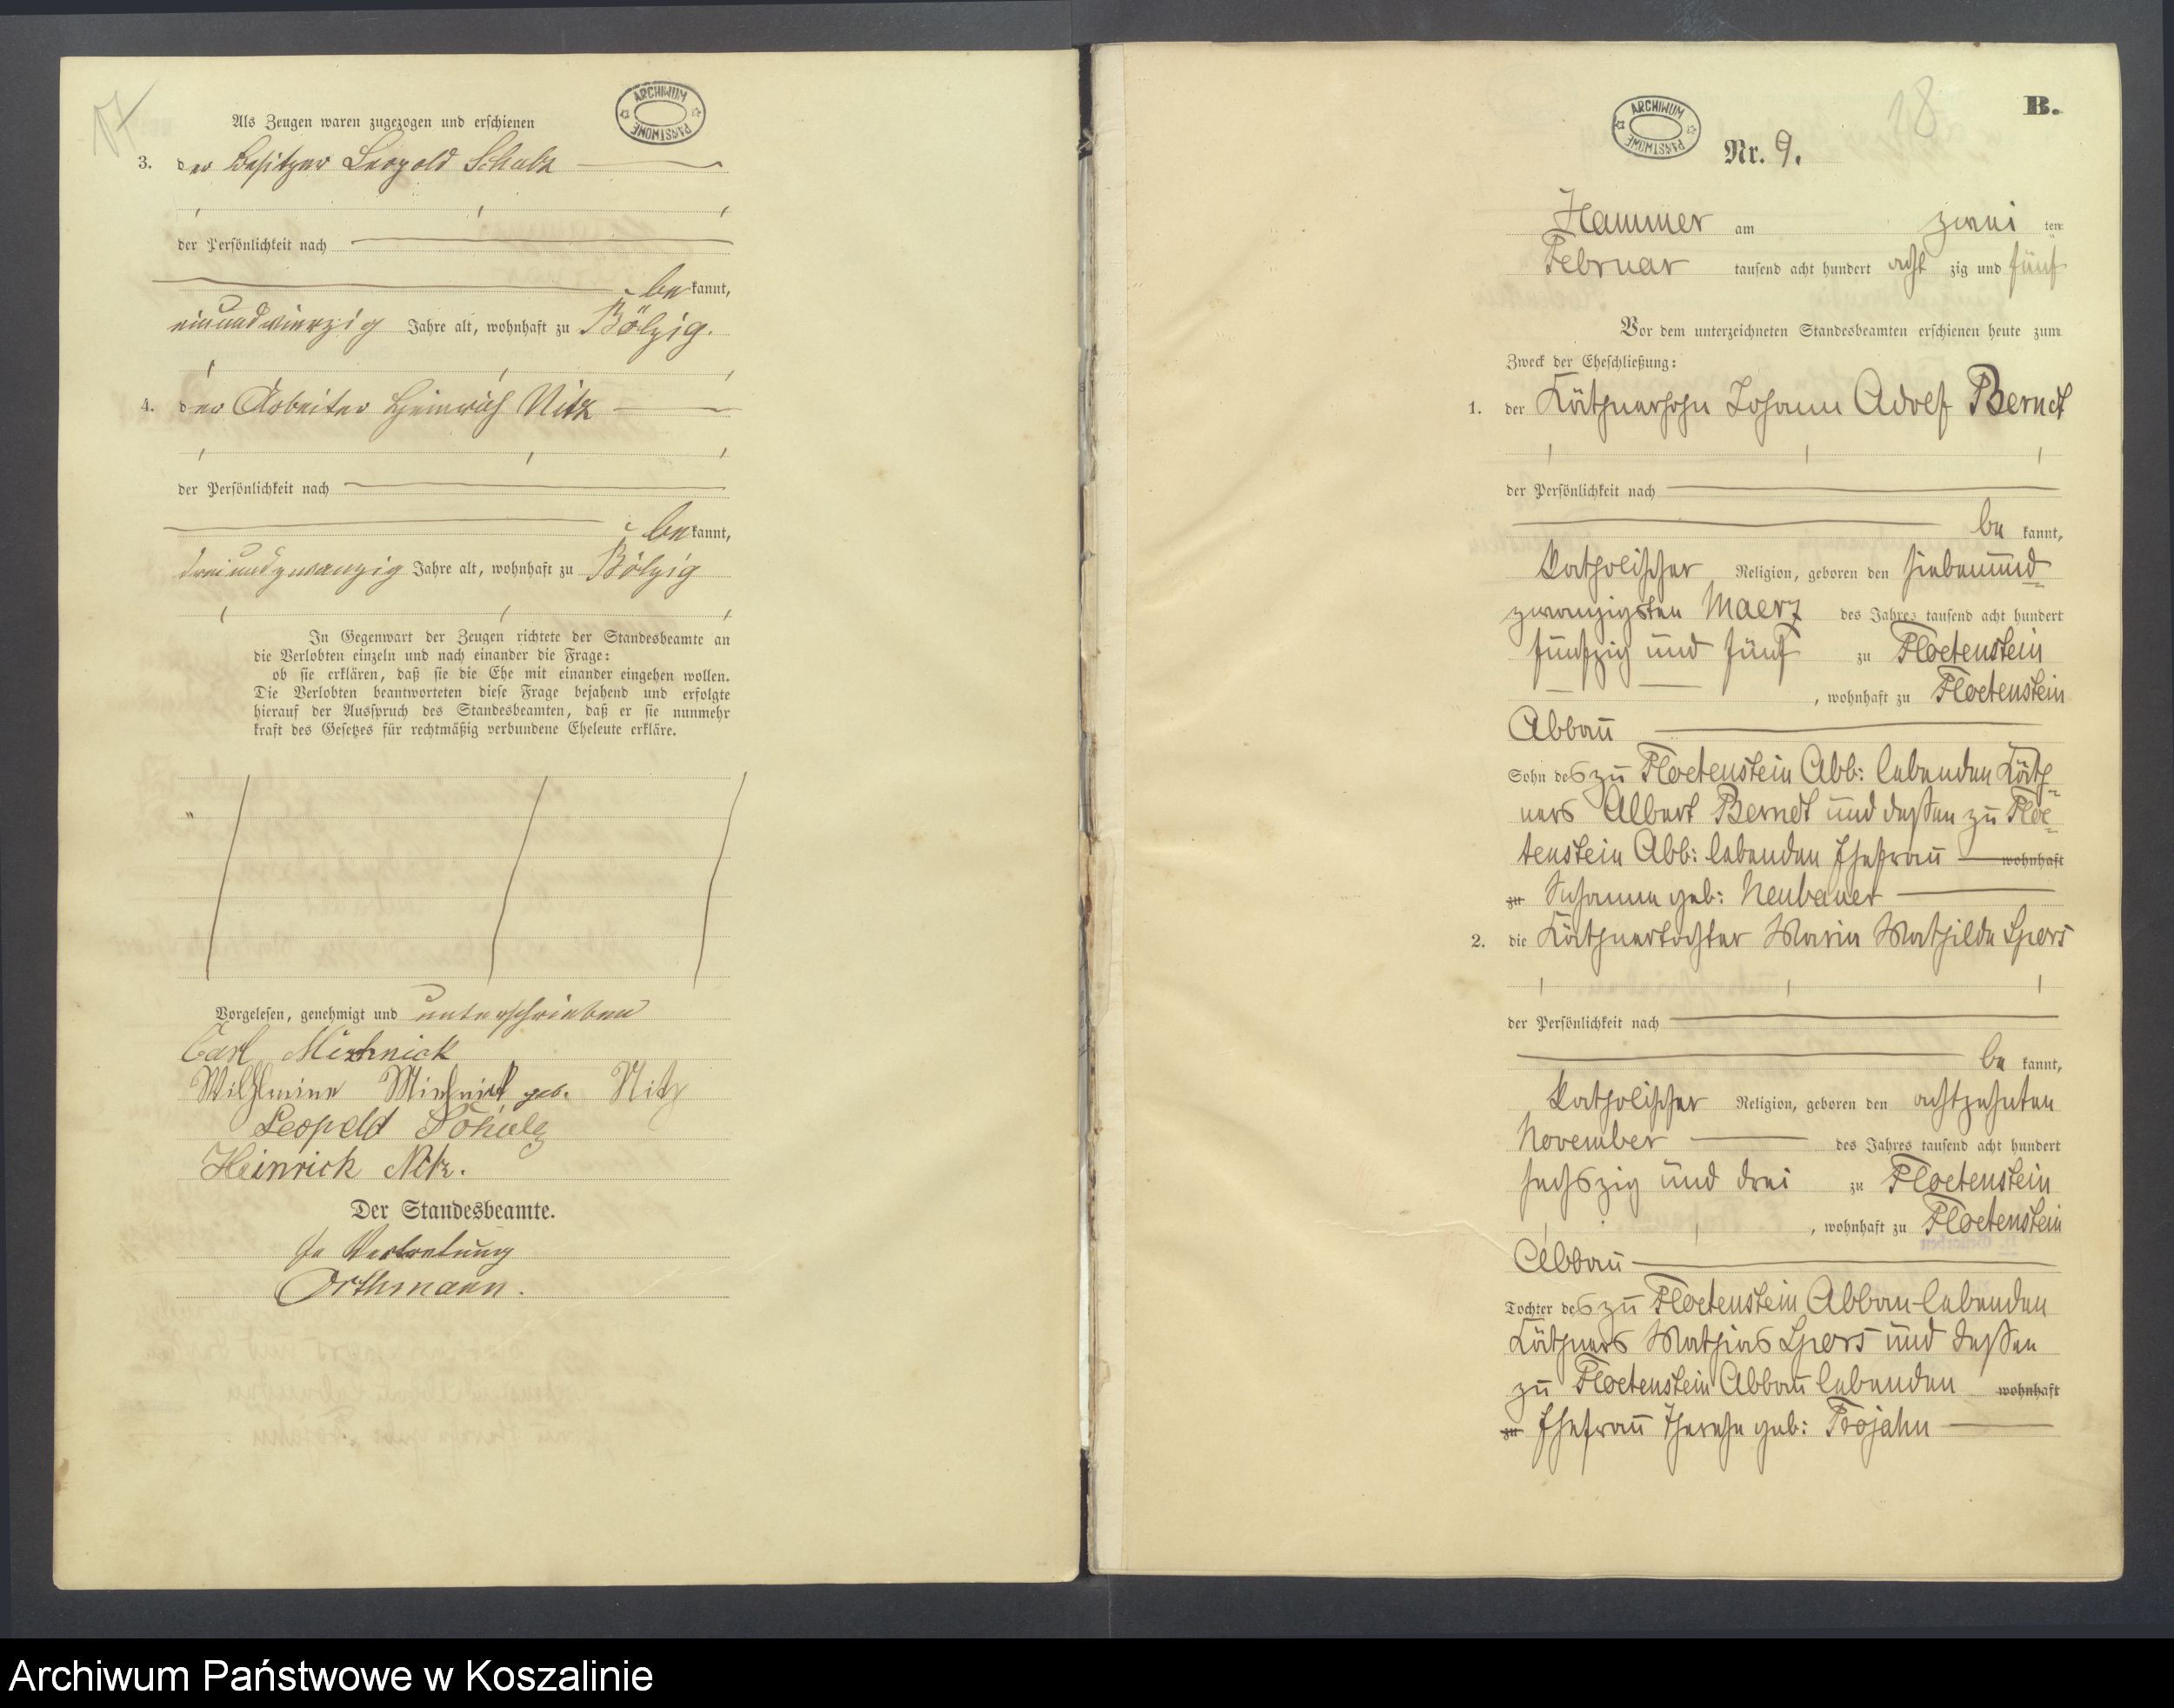 17
Als Zeugen waren zugezogen und erschienen
ARCHIWUM PAŃSTWOWE
3. der Besitzer Leopold Schulz
der Persönlichkeit nach
bekannt,
einundvierzig Jahre alt, wohnhaft zu Bölzig.
4. der Arbeiter Heinrich Nitz
der Persönlichkeit nach
bekannt,
dreiundzwanzig Jahre alt, wohnhaft zu Bölzig
In Gegenwart der Zeugen richtete der Standesbeamte an
die Verlobten einzeln und nach einander die Frage:
ob sie erklären, daß sie die Ehe mit einander eingehen wollen.
Die Verlobten beantworteten diese Frage bejahend und erfolgte
hierauf der Ausspruch des Standesbeamten, daß er sie nunmehr
kraft des Gesetzes für rechtmäßig verbundene Eheleute erkläre.
Vorgelesen, genehmigt und unterschrieben
Carl Mischnick
Wilhlmine Mischnick geb. Nitz
Leopold Schulz
Heinrich Nitz.
Der Standesbeamte.
In Vertretung
Orthmann.
18
B.
ARCHIWUM PAŃSTWOWE
Nr. 9.
Hammer am zwei ten
Februar tausend acht hundert acht zig und fünf
Vor dem unterzeichneten Standesbeamten erschienen heute zum
Zweck der Eheschließung:
1. der Käthnersohn Johann Adolf Berndt
der Persönlichkeit nach
be kannt,
katholischer Religion, geboren den siebenund-
zwanzigsten Maerz des Jahres tausend acht hundert
fünfzig und fünf zu Floetenstein
, wohnhaft zu Floetenstein
Abbau
Sohn des zu Floetenstein Abb: lebenden Käth-
ners Albert Berndt und dessen zu Floe-
tenstein Abb: lebenden Ehefrau wohnhaft
zu Susanna geb: Neubauer
2. die Käthnertochter Maria Mathilde Spors
der Persönlichkeit nach
be kannt,
katholischer Religion, geboren den achtzehnten
November des Jahres tausend acht hundert
sechszig und drei zu Floetenstein
, wohnhaft zu Floetenstein
Abbau
Tochter des zu Floetenstein Abbau lebenden
Käthners Mathias Spors und dessen
zu Floetenstein Abbau lebenden wohnhaft
zu Ehefrau Therese geb: Trojahn
Archiwum Państwowe w Koszalinie